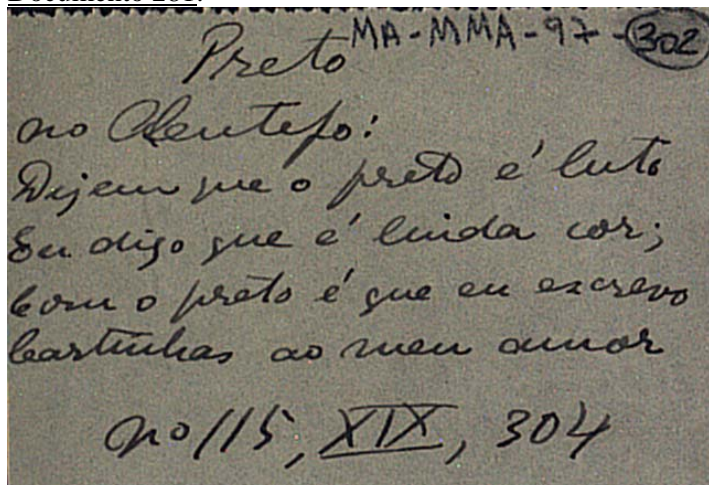 Documento 281.
MA-MMA-97-302
Preto
no Alentejo:
Dizem que o preto é luto
Eu digo que é linda cor;
Com o preto é que eu escrevo
Cartinhas ao meu amor
nº 115, XIX, 304